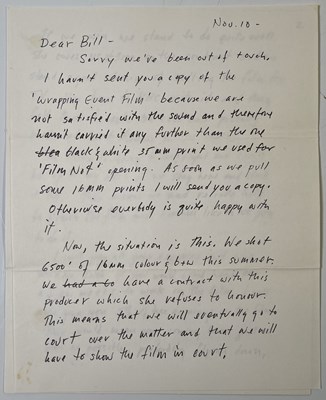 Nov. 10 -
Dear Bill -
Sorry we've been out of touch.
I havn't sent you a copy of the
'Wrapping Event Film' because we are
not satisfied with the sound and therefore
havn't carried it any further than the one
black & white 35mm print we used for
'Film Not' opening. As soon as we pull
some 16mm prints I will send you a copy.
Otherwise everbody is quite happy with
it.
Now, the situation is this. We shot
6500' of 16mm colour & b+w this summer.
We had a co have a contract with this
producer which she refuses to honour.
This means that we will eventually go to
court over the matter and that we will
have to show the film in court.